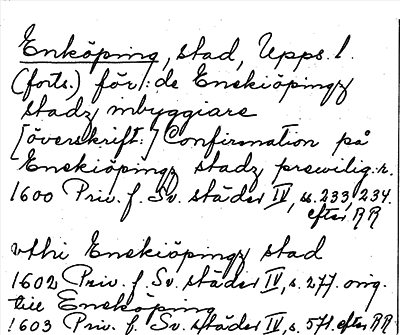 Enköping, stad, Upps. l.
(forts.) för: de Enskiöpingz
stadz inbyggiare
[överskrift:] Confirmation på
Enskiöpingz stadz prewilig:r.
1600 Priv. f. Sv. städer IV, ss. 233, 234.
efter RR
vthi Enskiöpingz stad
1602 Priv. f. Sv. städer IV, s. 277. orig.
till Ensköping
1603 Priv. f. Sv. städer IV, s. 571. efter RR